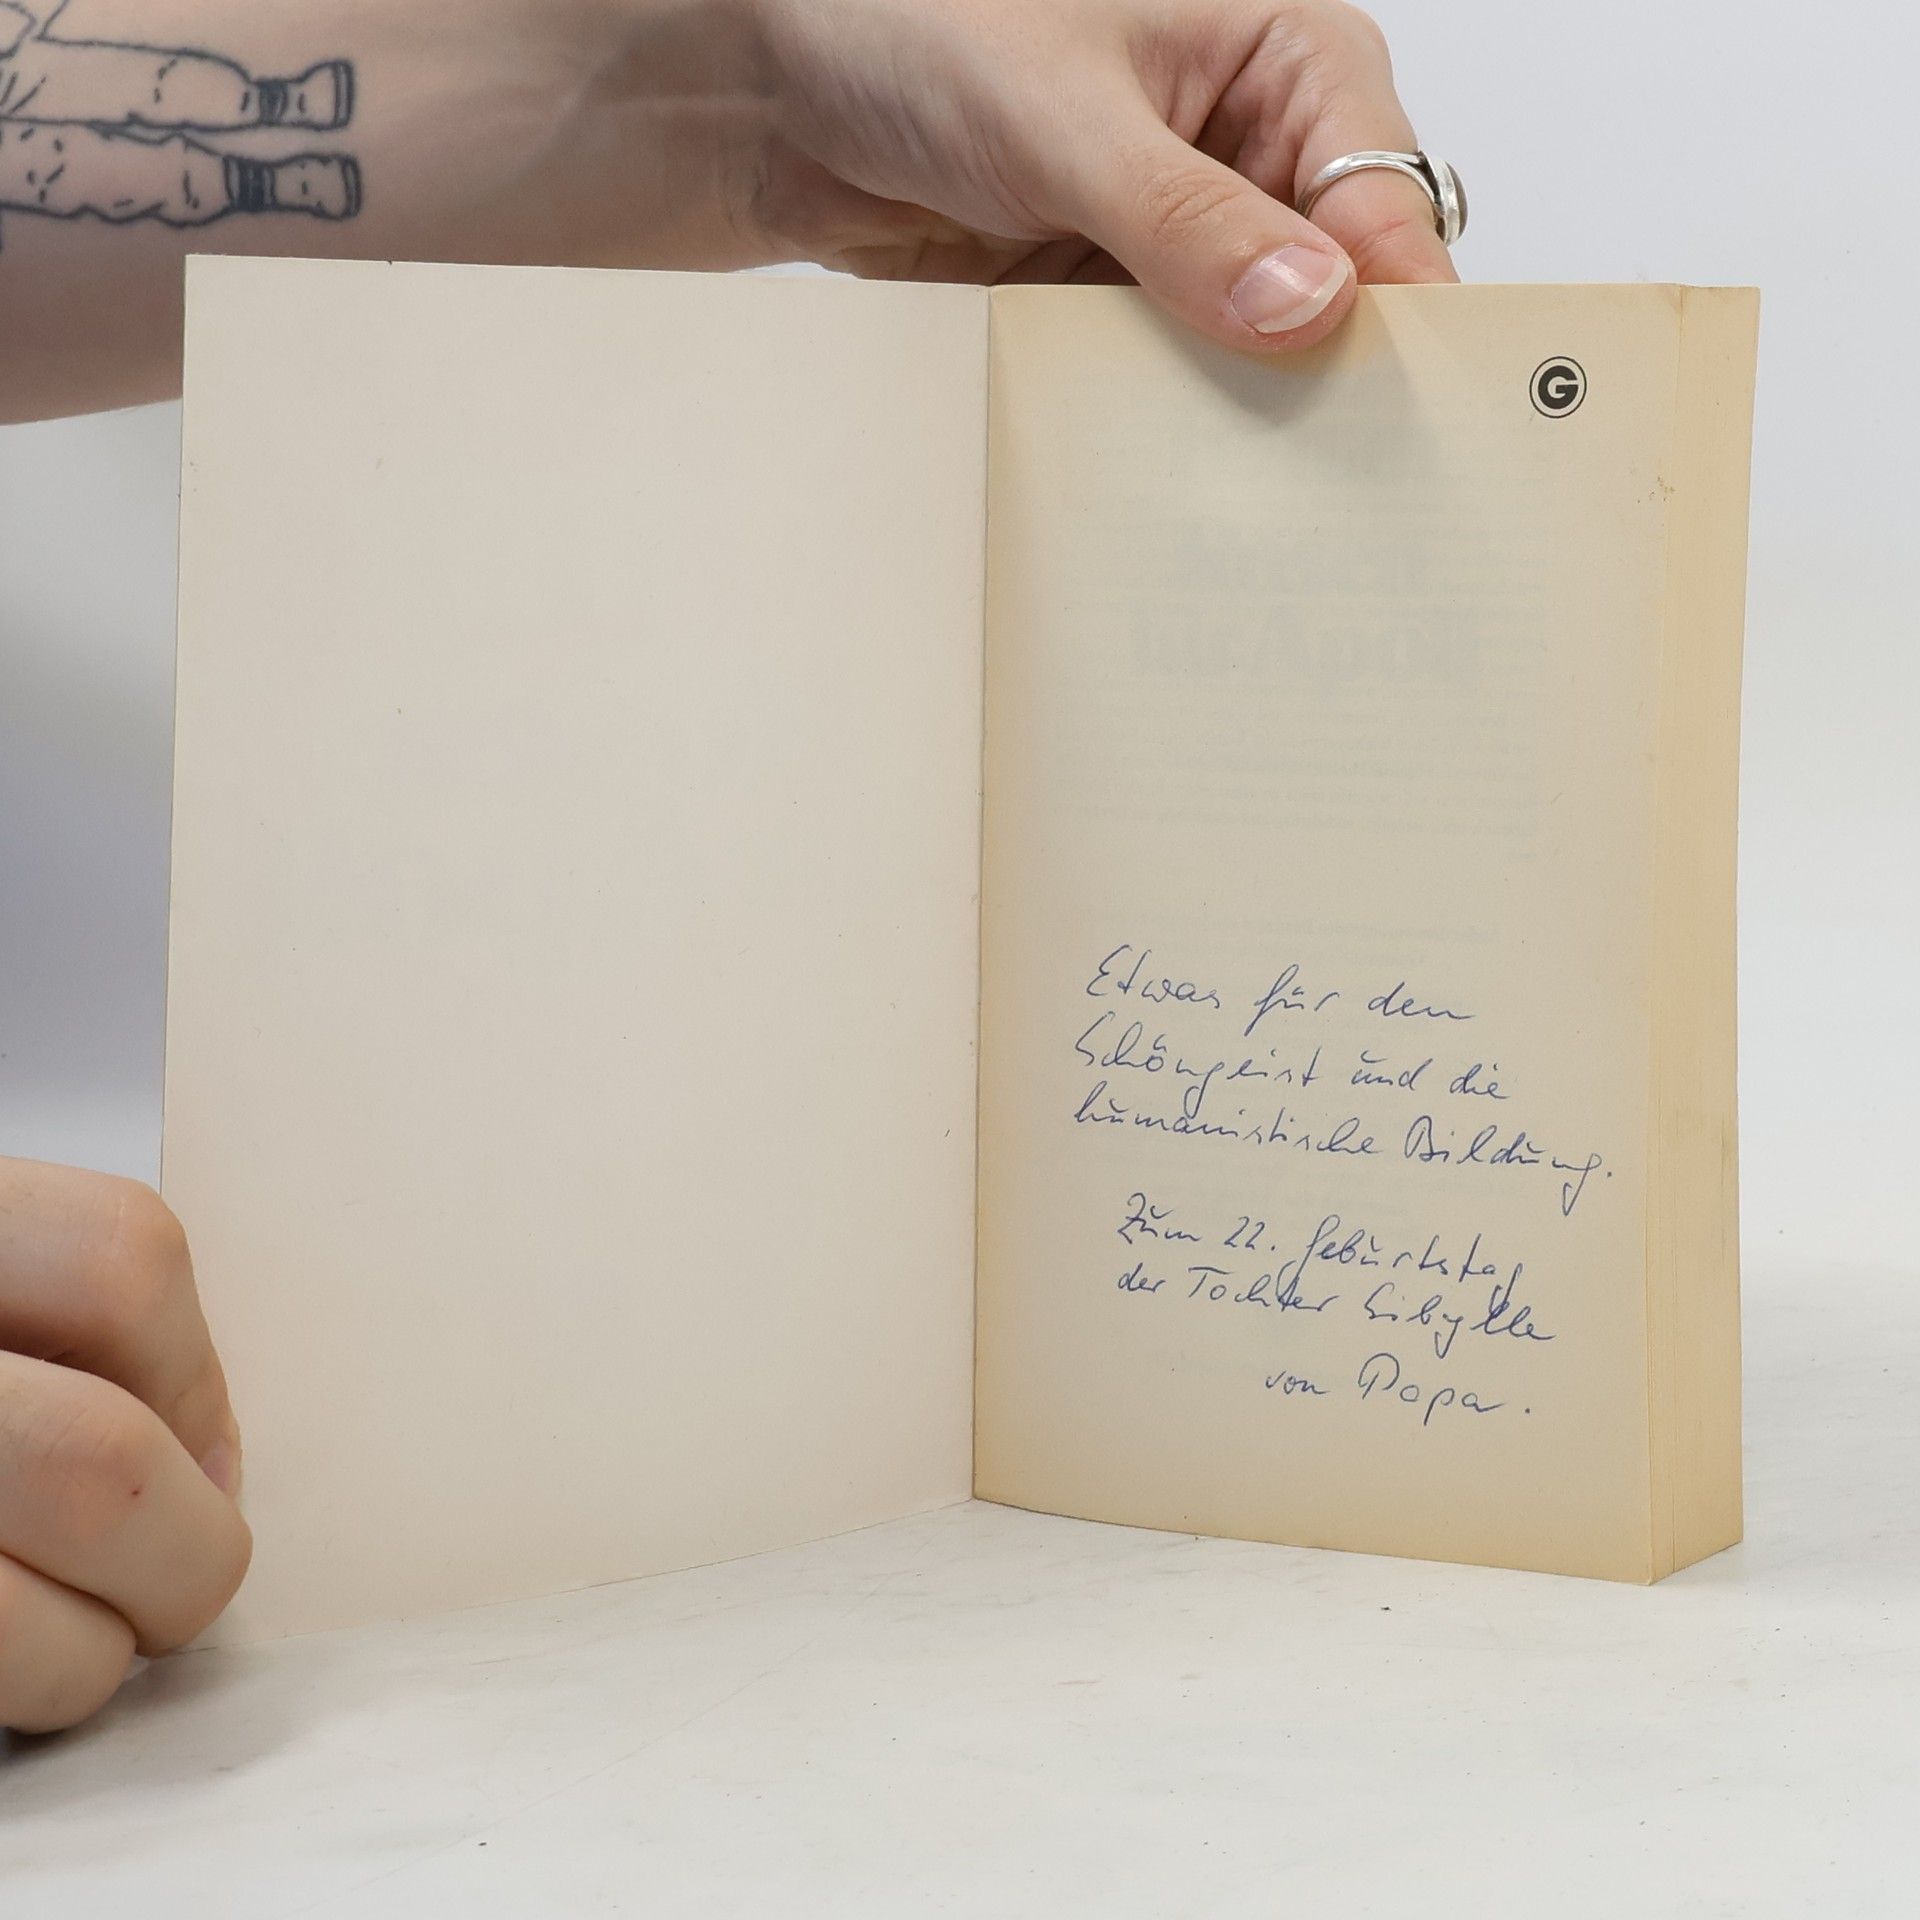 G
Etwas für den
Schöngeist und die
humanistische Bildung.
Zum 22. Geburtstag
der Tochter Sibylle
von Papa.